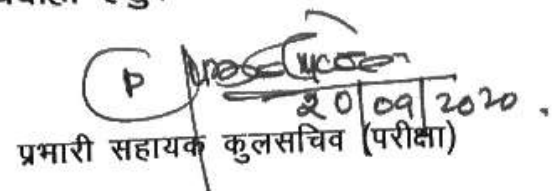 P
20/09/2020.
प्रभारी सहायक कुलसचिव (परीक्षा)